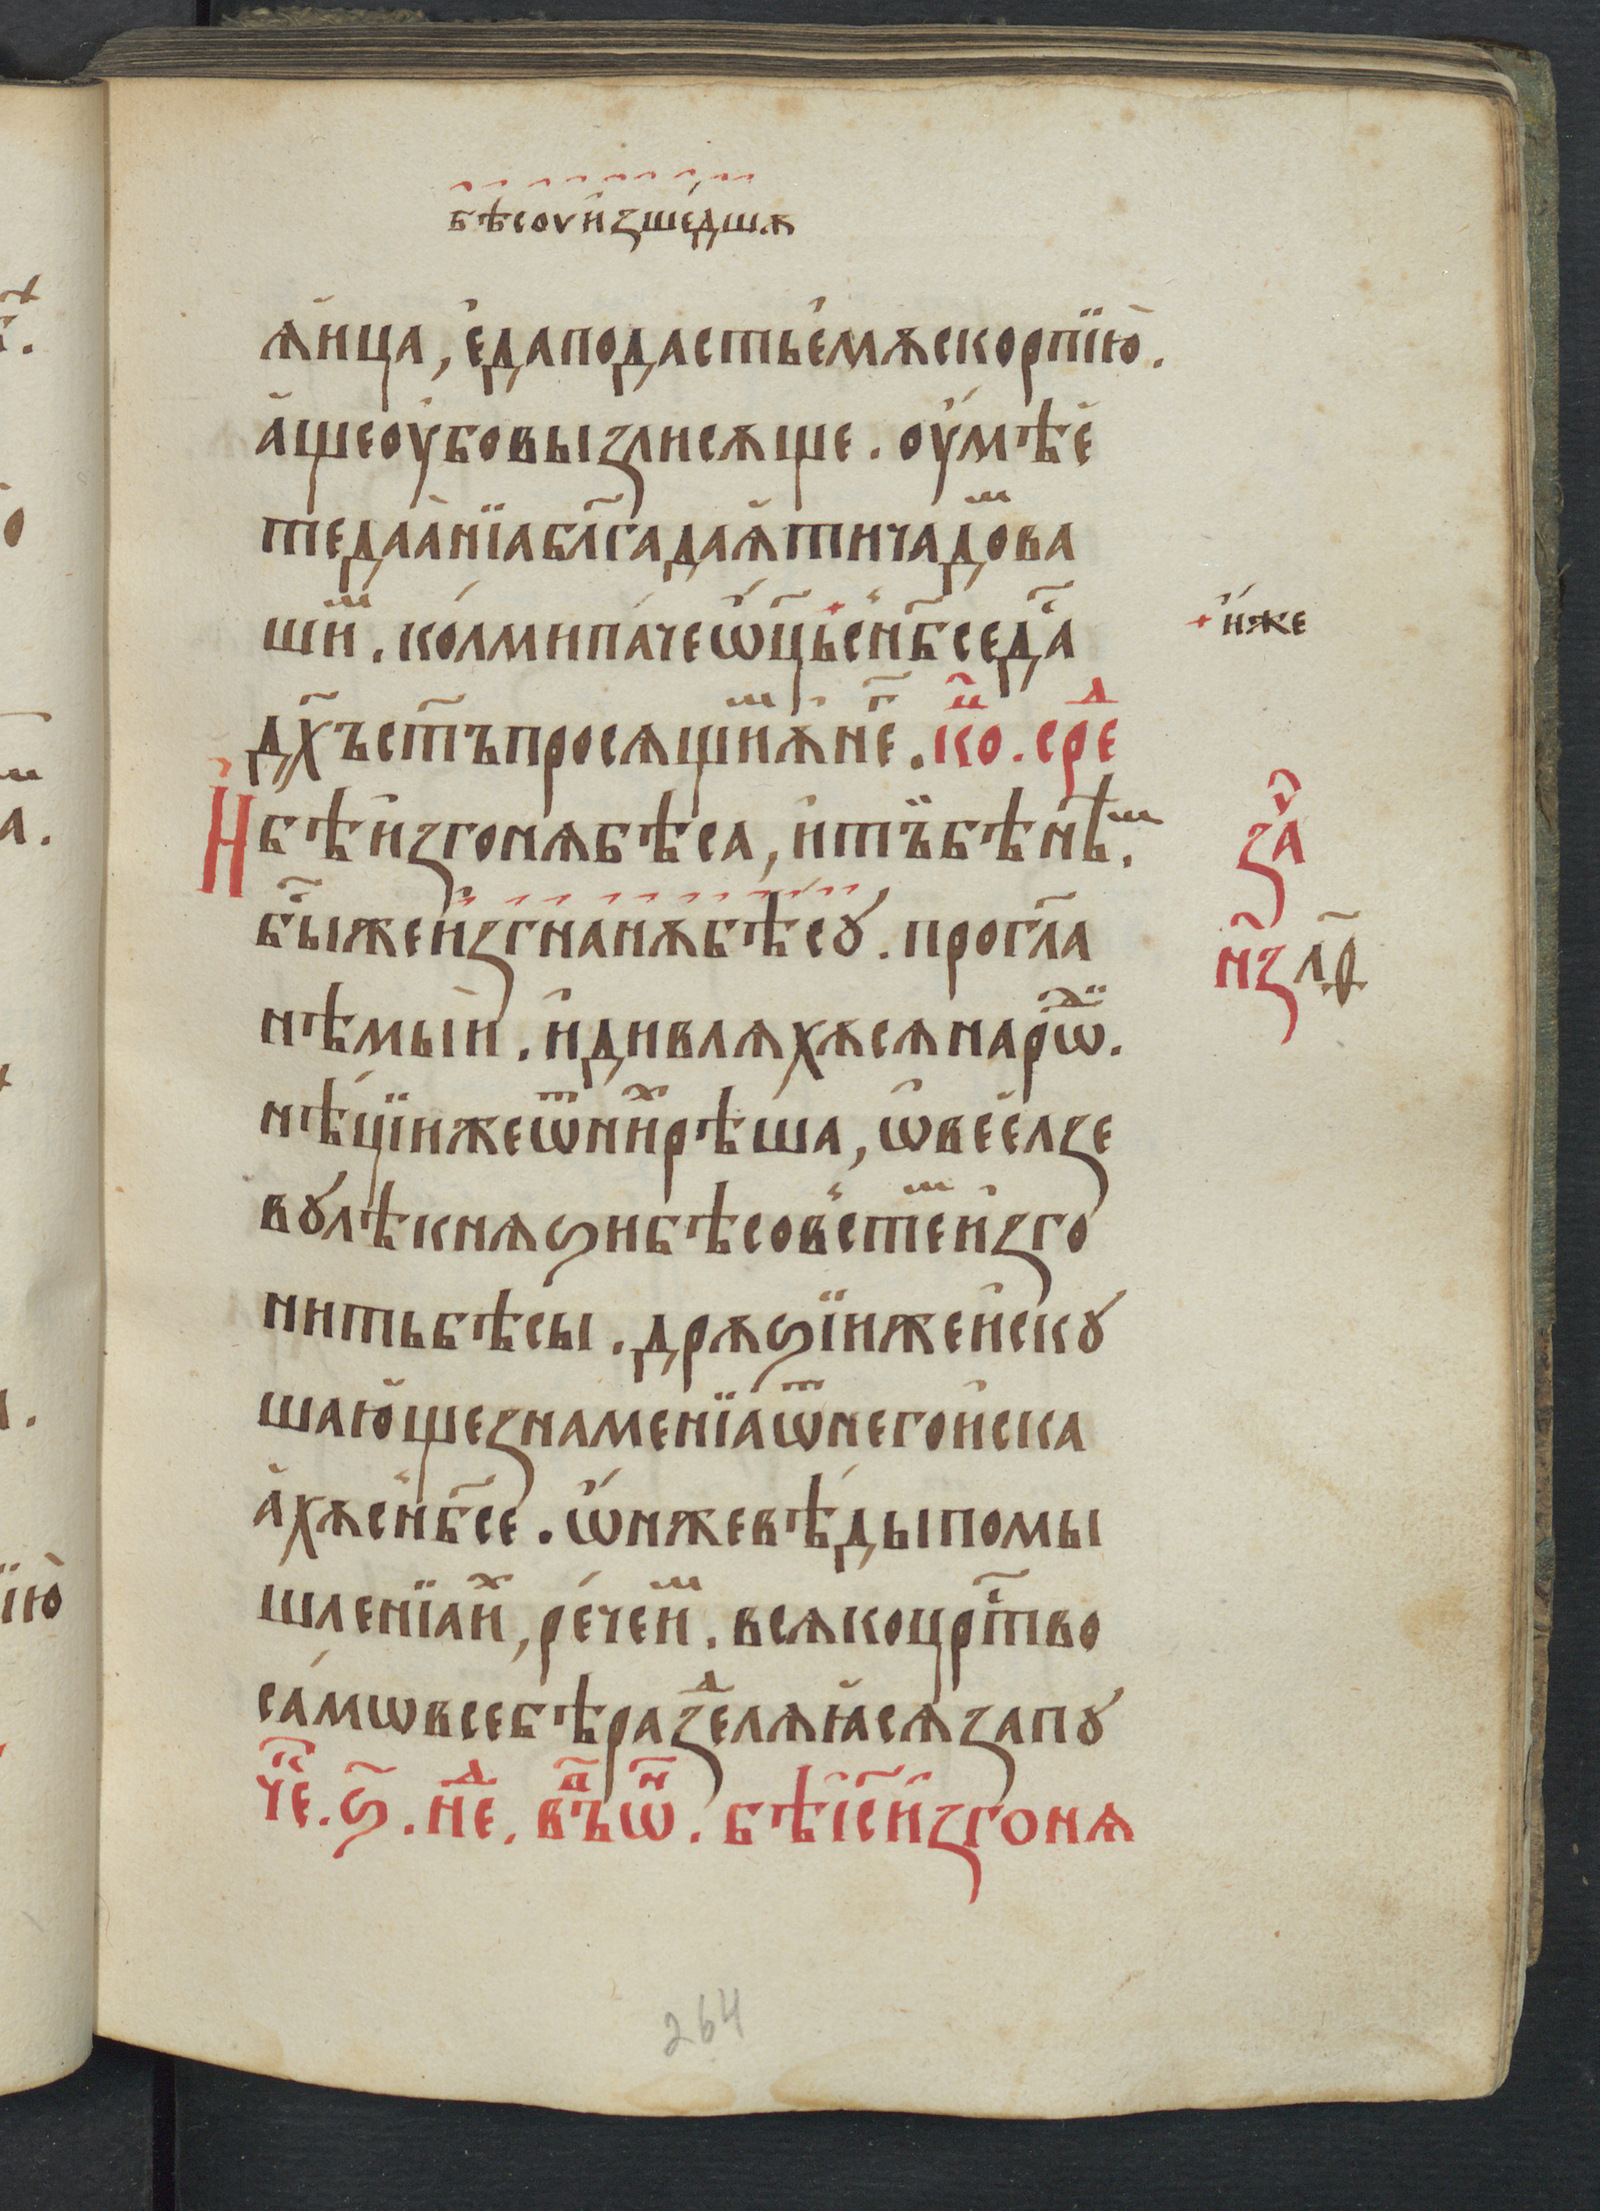 бѣсоу и҆зше́дшѫ
ꙗ҆́ица, е҆да подасть е҆мѫ скорпїю̀.
а҆ще оу҆бо вы зли сѫще. оу҆мѣе҆
те даа҆нїа бл҃га даꙗ҆ти чадѡⷨ ва
шиⷨ. ко́лми па́че ѿц҃ъ и҆с нб҃се да́
дх҃ъ ст҃ъ просѧщиⷨ ѫ҆ не҃. кⷪ҇о. среⷣ
И бѣ и҆згонѧ бѣса, и҆ тъ̈ бѣ нѣⷨ.
бы҃ же и҆згнанѫ бѣсꙋ. прогл҃а
нѣмыи. и҆ дивлѧхѫсѧ нароⷣѡ.
нѣ́цїи же ѿ ниⷯ рѣша, ѡ҆ веелзе
вꙋлѣ кнѧѕи бѣсовьстеⷨ и҆зго
нить бѣсы. дрꙋѕїи же и҆скꙋ
шаю҆ще знаменїа ѿ него и҆ска
а҆хѫ с нб҃се. ѡ҆́н же вѣ́ды помы
шленїа иⷯ, ре́че иⷨ. всѧко црⷭ҇тво
са́мѡ в себѣ разⷣелѧꙗ҆сѧ запꙋ
чⷮе. ѕ҃. неⷣ. въⷫ ѡⷩ. бѣ і҆с҃ и҆згонѧ
и҆́же
за҃
нз҃ лꙋ
264